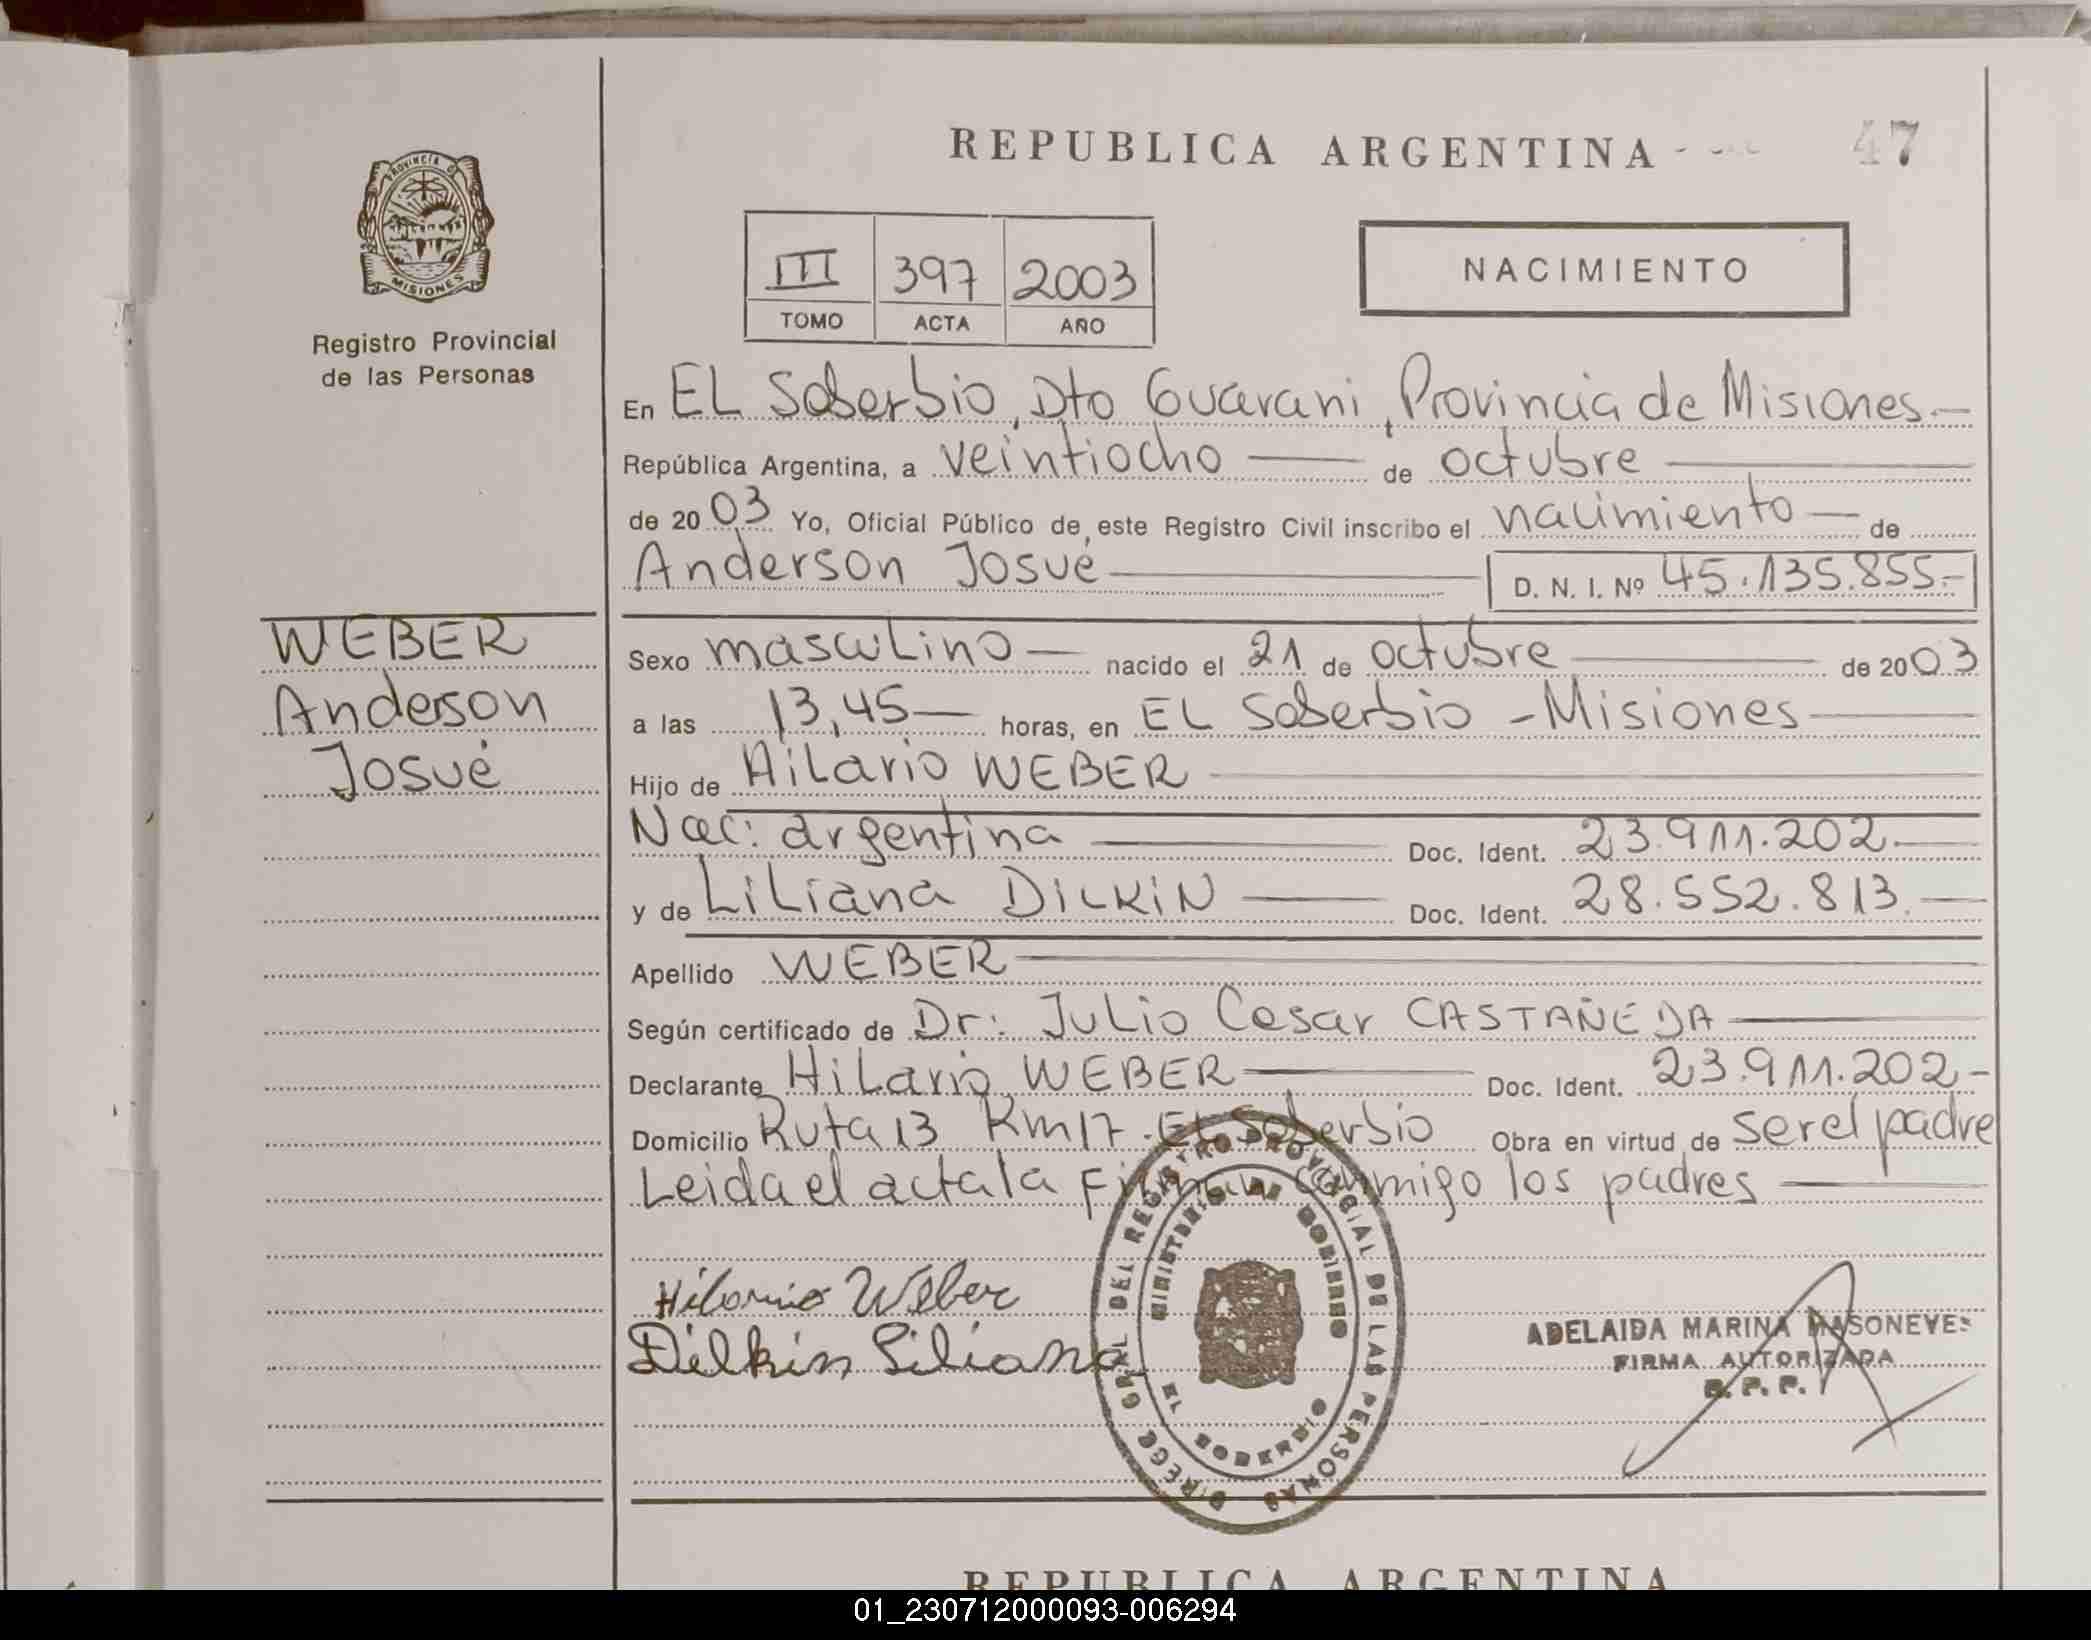 REPUBLICA ARGENTINA
47
PROVINCIA DE
MISIONES
Registro Provincial
de las Personas
III 397 2003
TOMO ACTA AÑO
NACIMIENTO
En EL Soberbio, Dto Guarani, Provincia de Misiones.-
República Argentina, a veintiocho de octubre
de 2003 Yo, Oficial Público de este Registro Civil inscribo el nacimiento de
Anderson Josué D. N. I. Nº 45.135.855.-
WEBER
Anderson
Josué
Sexo masculino nacido el 21 de octubre de 2003
a las 13,45 horas, en EL Soberbio - Misiones
Hijo de Hilario WEBER
Nac: argentina Doc. Ident. 23.911.202.
y de Liliana DILKIN Doc. Ident. 28.552.813.
Apellido WEBER
Según certificado de Dr: Julio Cesar CASTAÑEDA
Declarante Hilario WEBER Doc. Ident. 23.911.202-
Domicilio Ruta 13 Km 17. EL Soberbio Obra en virtud de ser el padre
Leida el acta la Firman conmigo los padres
Hilario Weber
Dilkin Liliana
DIRECC. GRAL DEL REGISTRO PROVINCIAL DE LAS PERSONAS
MINISTERIO DE GOBIERNO
EL SOBERBIO
ADELAIDA MARINA
FIRMA AUTORIZADA
REPUBLICA ARGENTINA
01_230712000093-006294